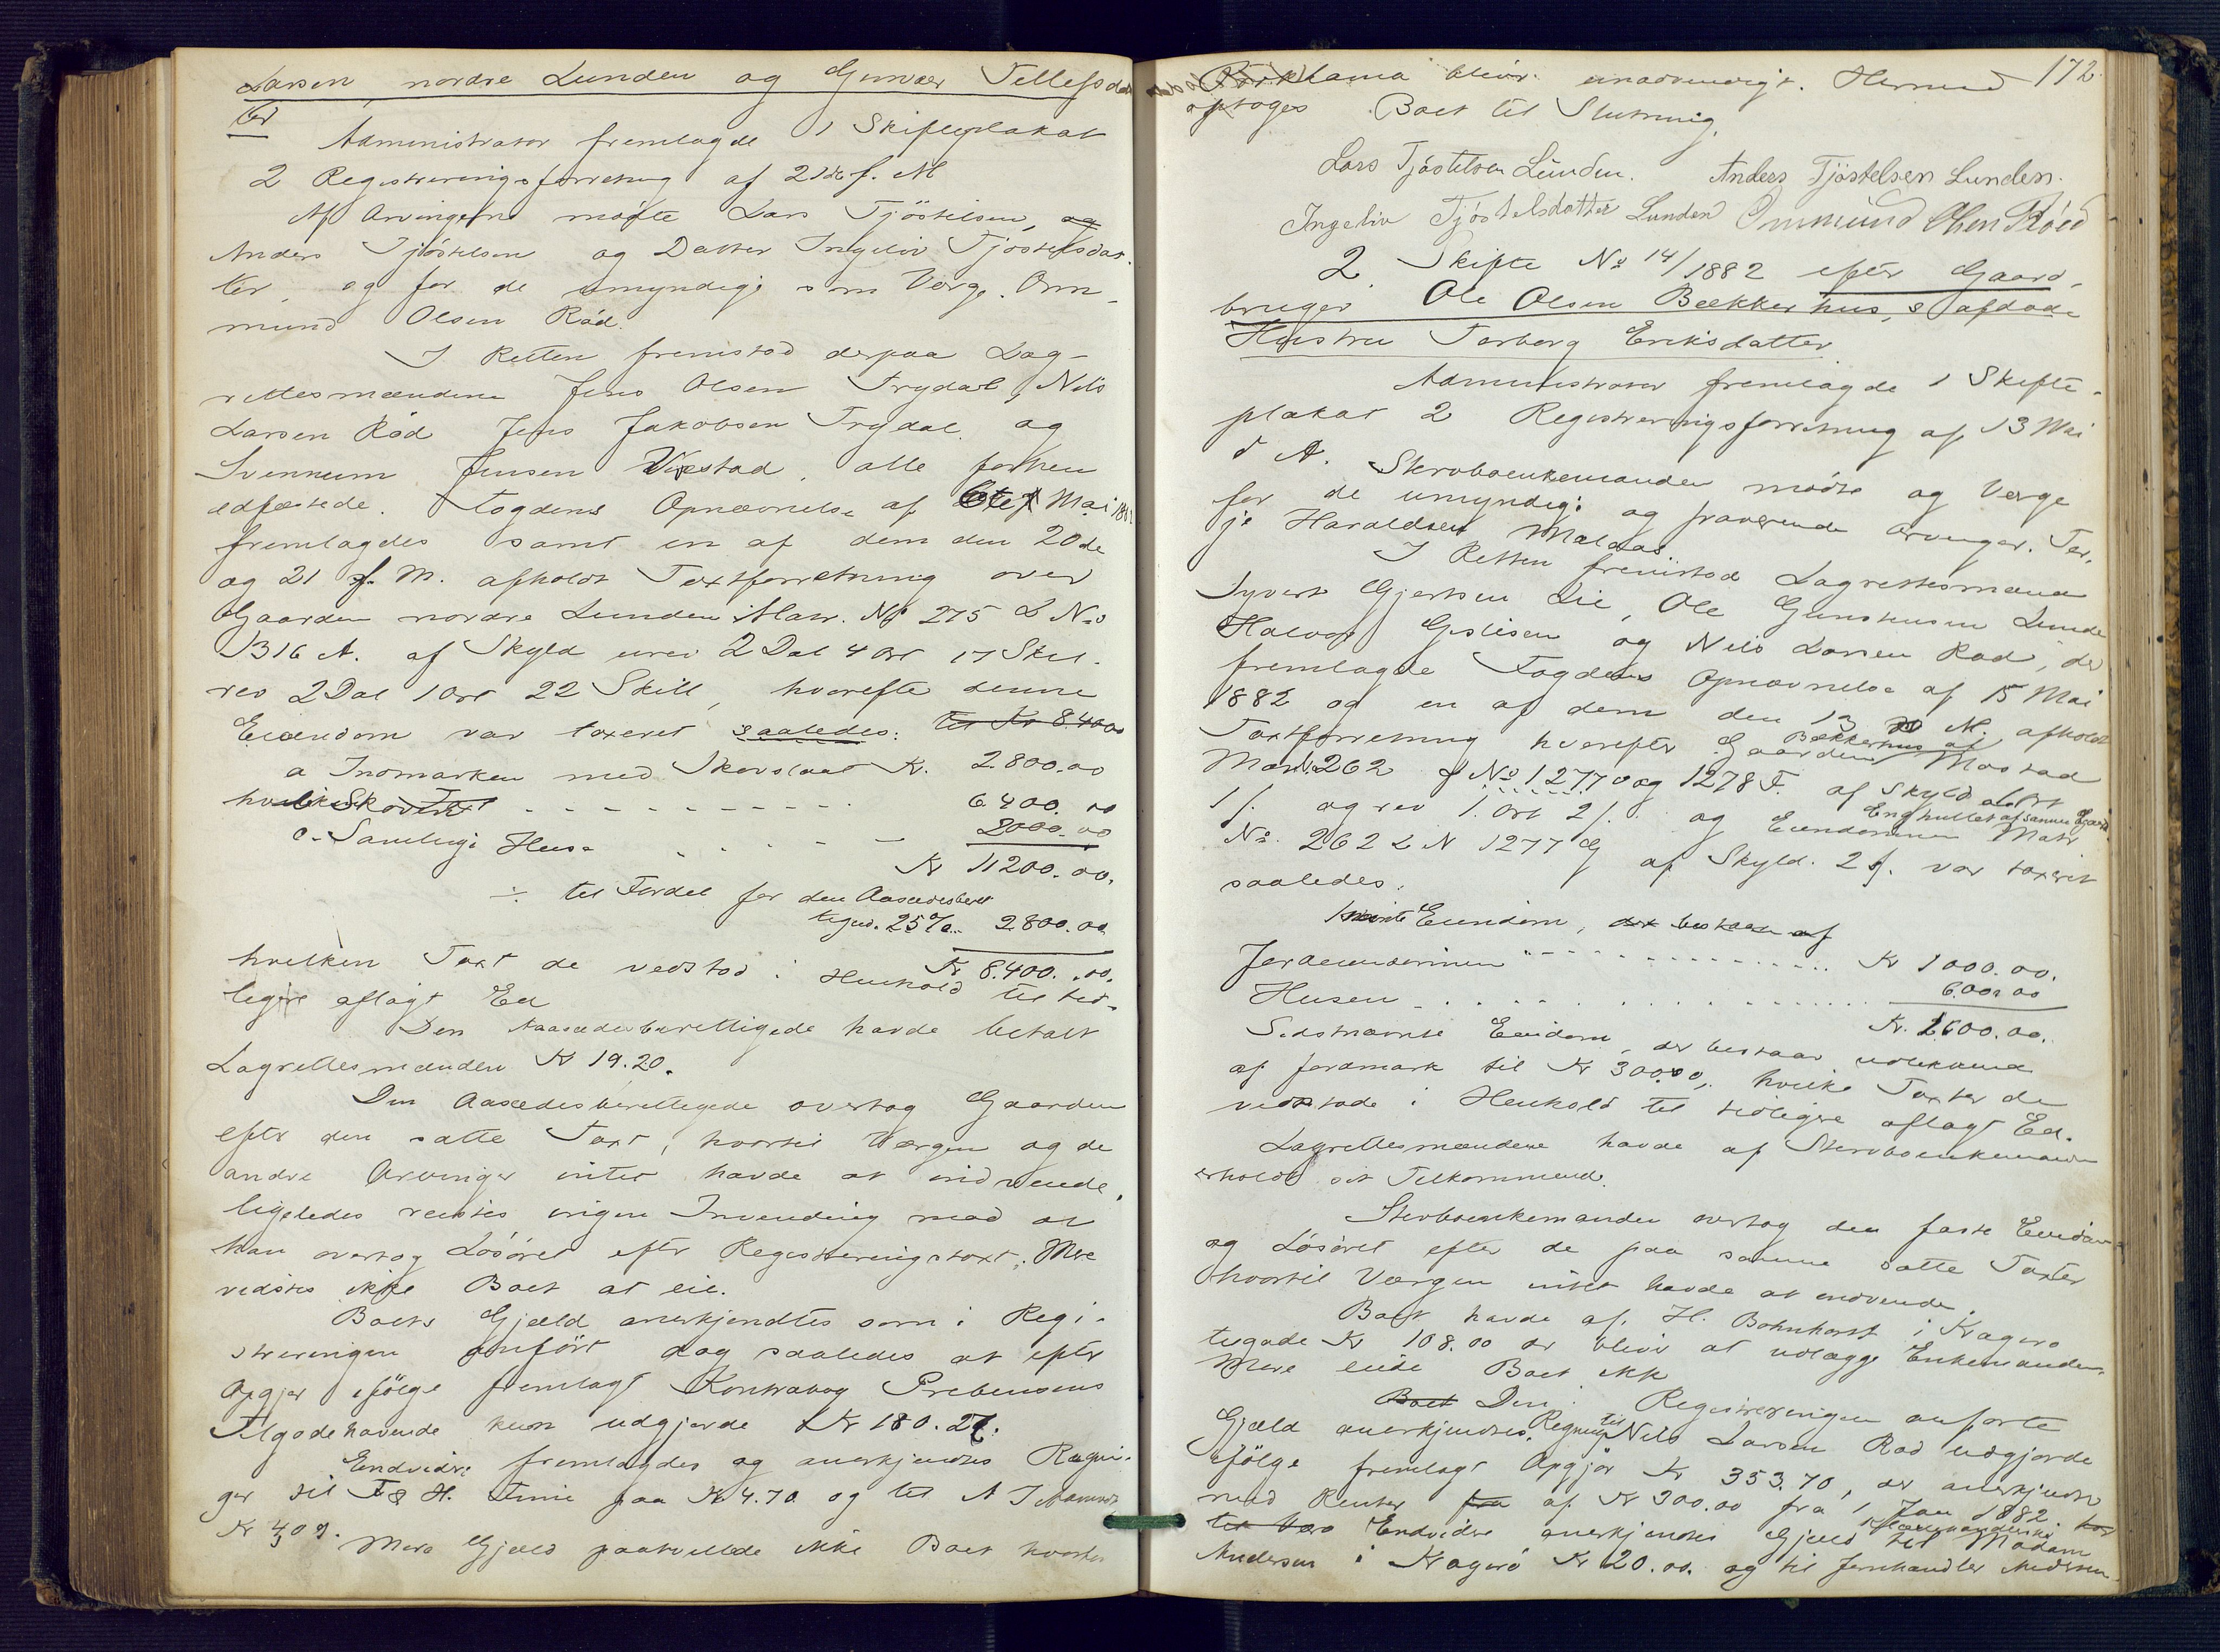 Larsen, nordre Lunden og Gunvor Tellefsdat
ter
Administrator fremlagde 1 Skifteplakat
2 Registreringsforretning af 21de f. M
Af Arvingerne mødte Lars Tjöstelsen, og
Anders Tjöstelsen og Datter Ingeliv Tjöstelsdat-
ter, og for de umyndige som Verge Om-
mund Olsen Röd.
I Retten fremstod derpaa Lag-
rettesmændene Jens Olsen Trydal, Nils
Larsen Röd Jens Jakobsen Trydal og
Svennum Jensen Vigstad, alle forhen
edfæstede. Fogdens Opnævnelse af Mai 1882
fremlagdes samt en af dem den 20de
og 21 f. M. afholdt Taxtforretning over
Gaarden nordre Lunden Matr. No 275 L No
1316 A. af Skyld urev 2 Dal 4 Ort 17 Skil.
rev 2 Dal 1 Ort 22 Skill, hvorefter denne
Eiendom var taxeret saaledes: til Kr 8.400.00
a Indmarken med Skovslaat Kr. 2.800.00
Skoven 6.400.00
c. Samtlige Huse 2000.00
Kr 11200.00.
÷ til Fordel for den Aasædesberet
tigede. 25%.. 2.800.00
Kr 8.400.00.
hvilken Taxt de vedstod i Henhold til tid-
ligere aflagt Ed
Den Aasædesberettigede havde betalt
Lagrettesmænden Kr 19.20.
Den Aasædesberettigede overtog Gaarden
efter den satte Taxt, hvortil Værgen og de
andre Arvinger intet havde at indvende,
ligeledes reistes ingen Invending mod at
han overtog Lösöret efter Registreringstaxt. Mere
vidstes ikke Boet at eie.
Boets Gjæld anerkjendtes som i Regi-
streringen anfört dog saaledes at efter
Opgjør ifölge fremlagt Kontrabog Prebensens
Tilgodehavende kun udgjorde Kr 180.27.
Endvidere fremlagdes og anerkjendtes Regnin-
ger til T & H. paa Kr 4.70 og til A
Kr 4.09. Mere Gjæld paahvilede ikke Boet hvorfor
172
Proklama blev unødvendigt. Hermed
optoges Boet til Slutning.
Lars Tjöstelsen Lunden. Anders Tjöstelsen Lunden.
Ingeliv Tjöstelsdatter Lunden Ommund Olsen Röed
2. Skifte No 14/1882 efter Gaard-
bruger Ole Olsen Bækkerhus's afdøde
Hustru Torborg Eriksdatter
Administrator fremlagde 1 Skifte-
plakat 2 Registreringsforretning af 13 Mai
d A. Stervboenkemanden mødte og Verge
for de umyndige og fraværende Arvinger. Ter-
je Haraldsen Maldaas.
I Retten fremstod Lagrettesmænd
Syvert Gjertsen Lie, Ole Gunstensen Lunde
Halvor Gislesen og Nils Larsen Röd, de
fremlagde Fogdens Opnævnelse af 15 Mai
1882 og en af dem den 13 M. afholdt
Taxtforretning hvorefter Gaarden Mostad
Bækkerhus af
Matr. No 262 No 1277 og 1278 F. af Skyld Ort
1 f. og rev 1. Ort 2 f. og Eiendommen Matr
Enghullet af samme Gaard
No. 262 L N 1277 G af Skyld. 2 f. var taxeret
saaledes.
Eiendom, der bestaar af
Jordeiendommen Kr 1000.00.
Husene 600.00
Kr. 1600.00.
Sidstnævnte Eiendom, der bestaar udelukkende
af Jordmark til Kr 300.00, hvilke Taxter de
vedstode i Henhold til tidligere aflagt Ed.
Lagrettesmændene havde af Stervboenkemanden
erholdt sit Tilkommende.
Stervboenkemanden overtog den faste Eiendom
og Lösöret efter de paa samme satte Taxter
hvortil Værgen intet havde at indvende.
Boet havde af. H. Bohnhorst i Kragerø
tilgode Kr 108.00 der blev at udlægge Enkemanden.
Mere eiede Boet ikke
Boet Den i Registreringen anførte
Gjæld anerkjendtes. Regning til Nils Larsen Röd udgjorde
ifölge fremlagt Opgjör Kr 353.70, der anerkjendtes
med Renter fra af Kr 300.00 fra 1 Jan 1882.
Endvidere anerkjendtes Gjæld til Madam
Andersen i Kragerö Kr 20.00. og til Jernhandler Andersen